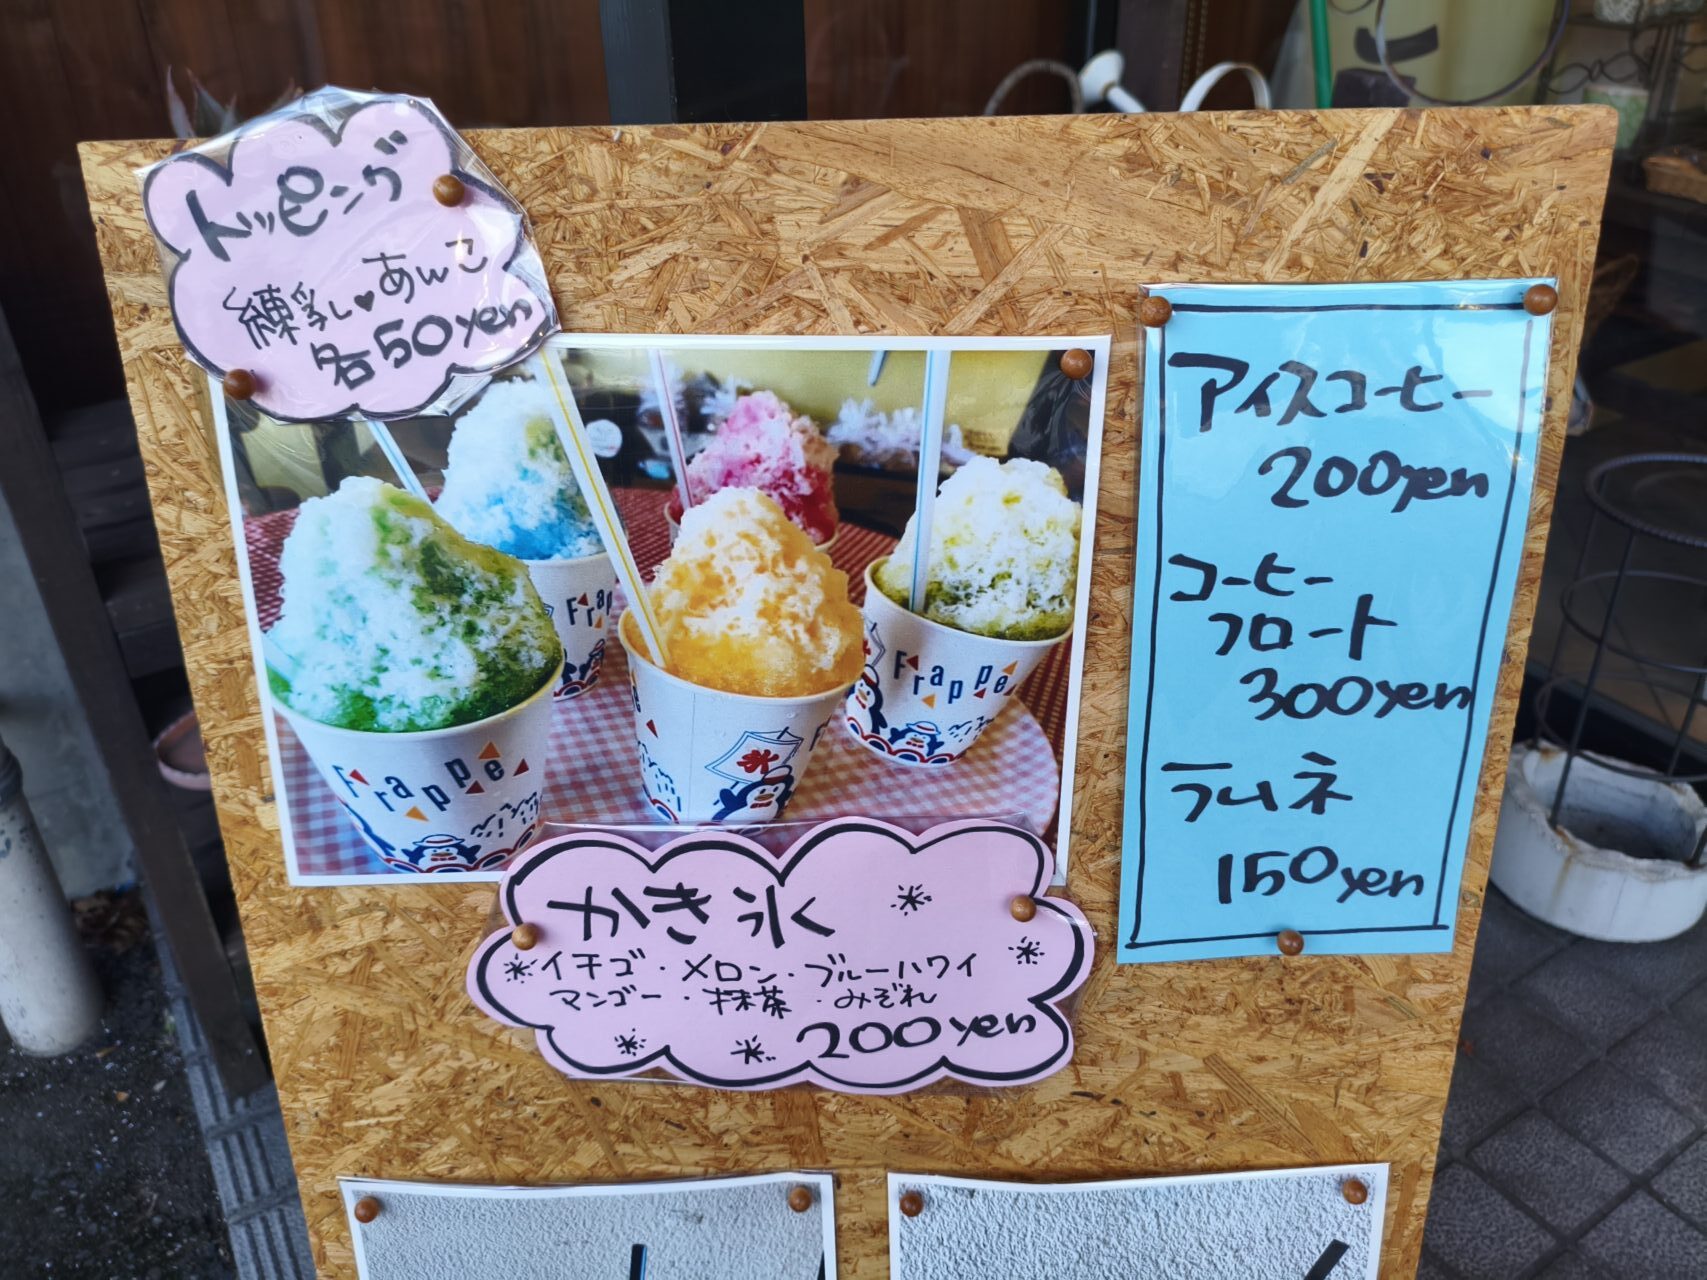 トッピング
練乳♥あんこ
各50yen
Frappe
Frap
Frappe
氷
かき氷
イチゴ・メロン・ブルーハワイ
マンゴー・抹茶・みぞれ
200yen
アイスコーヒー
200yen
コーヒー
フロート
300yen
ラムネ
150yen